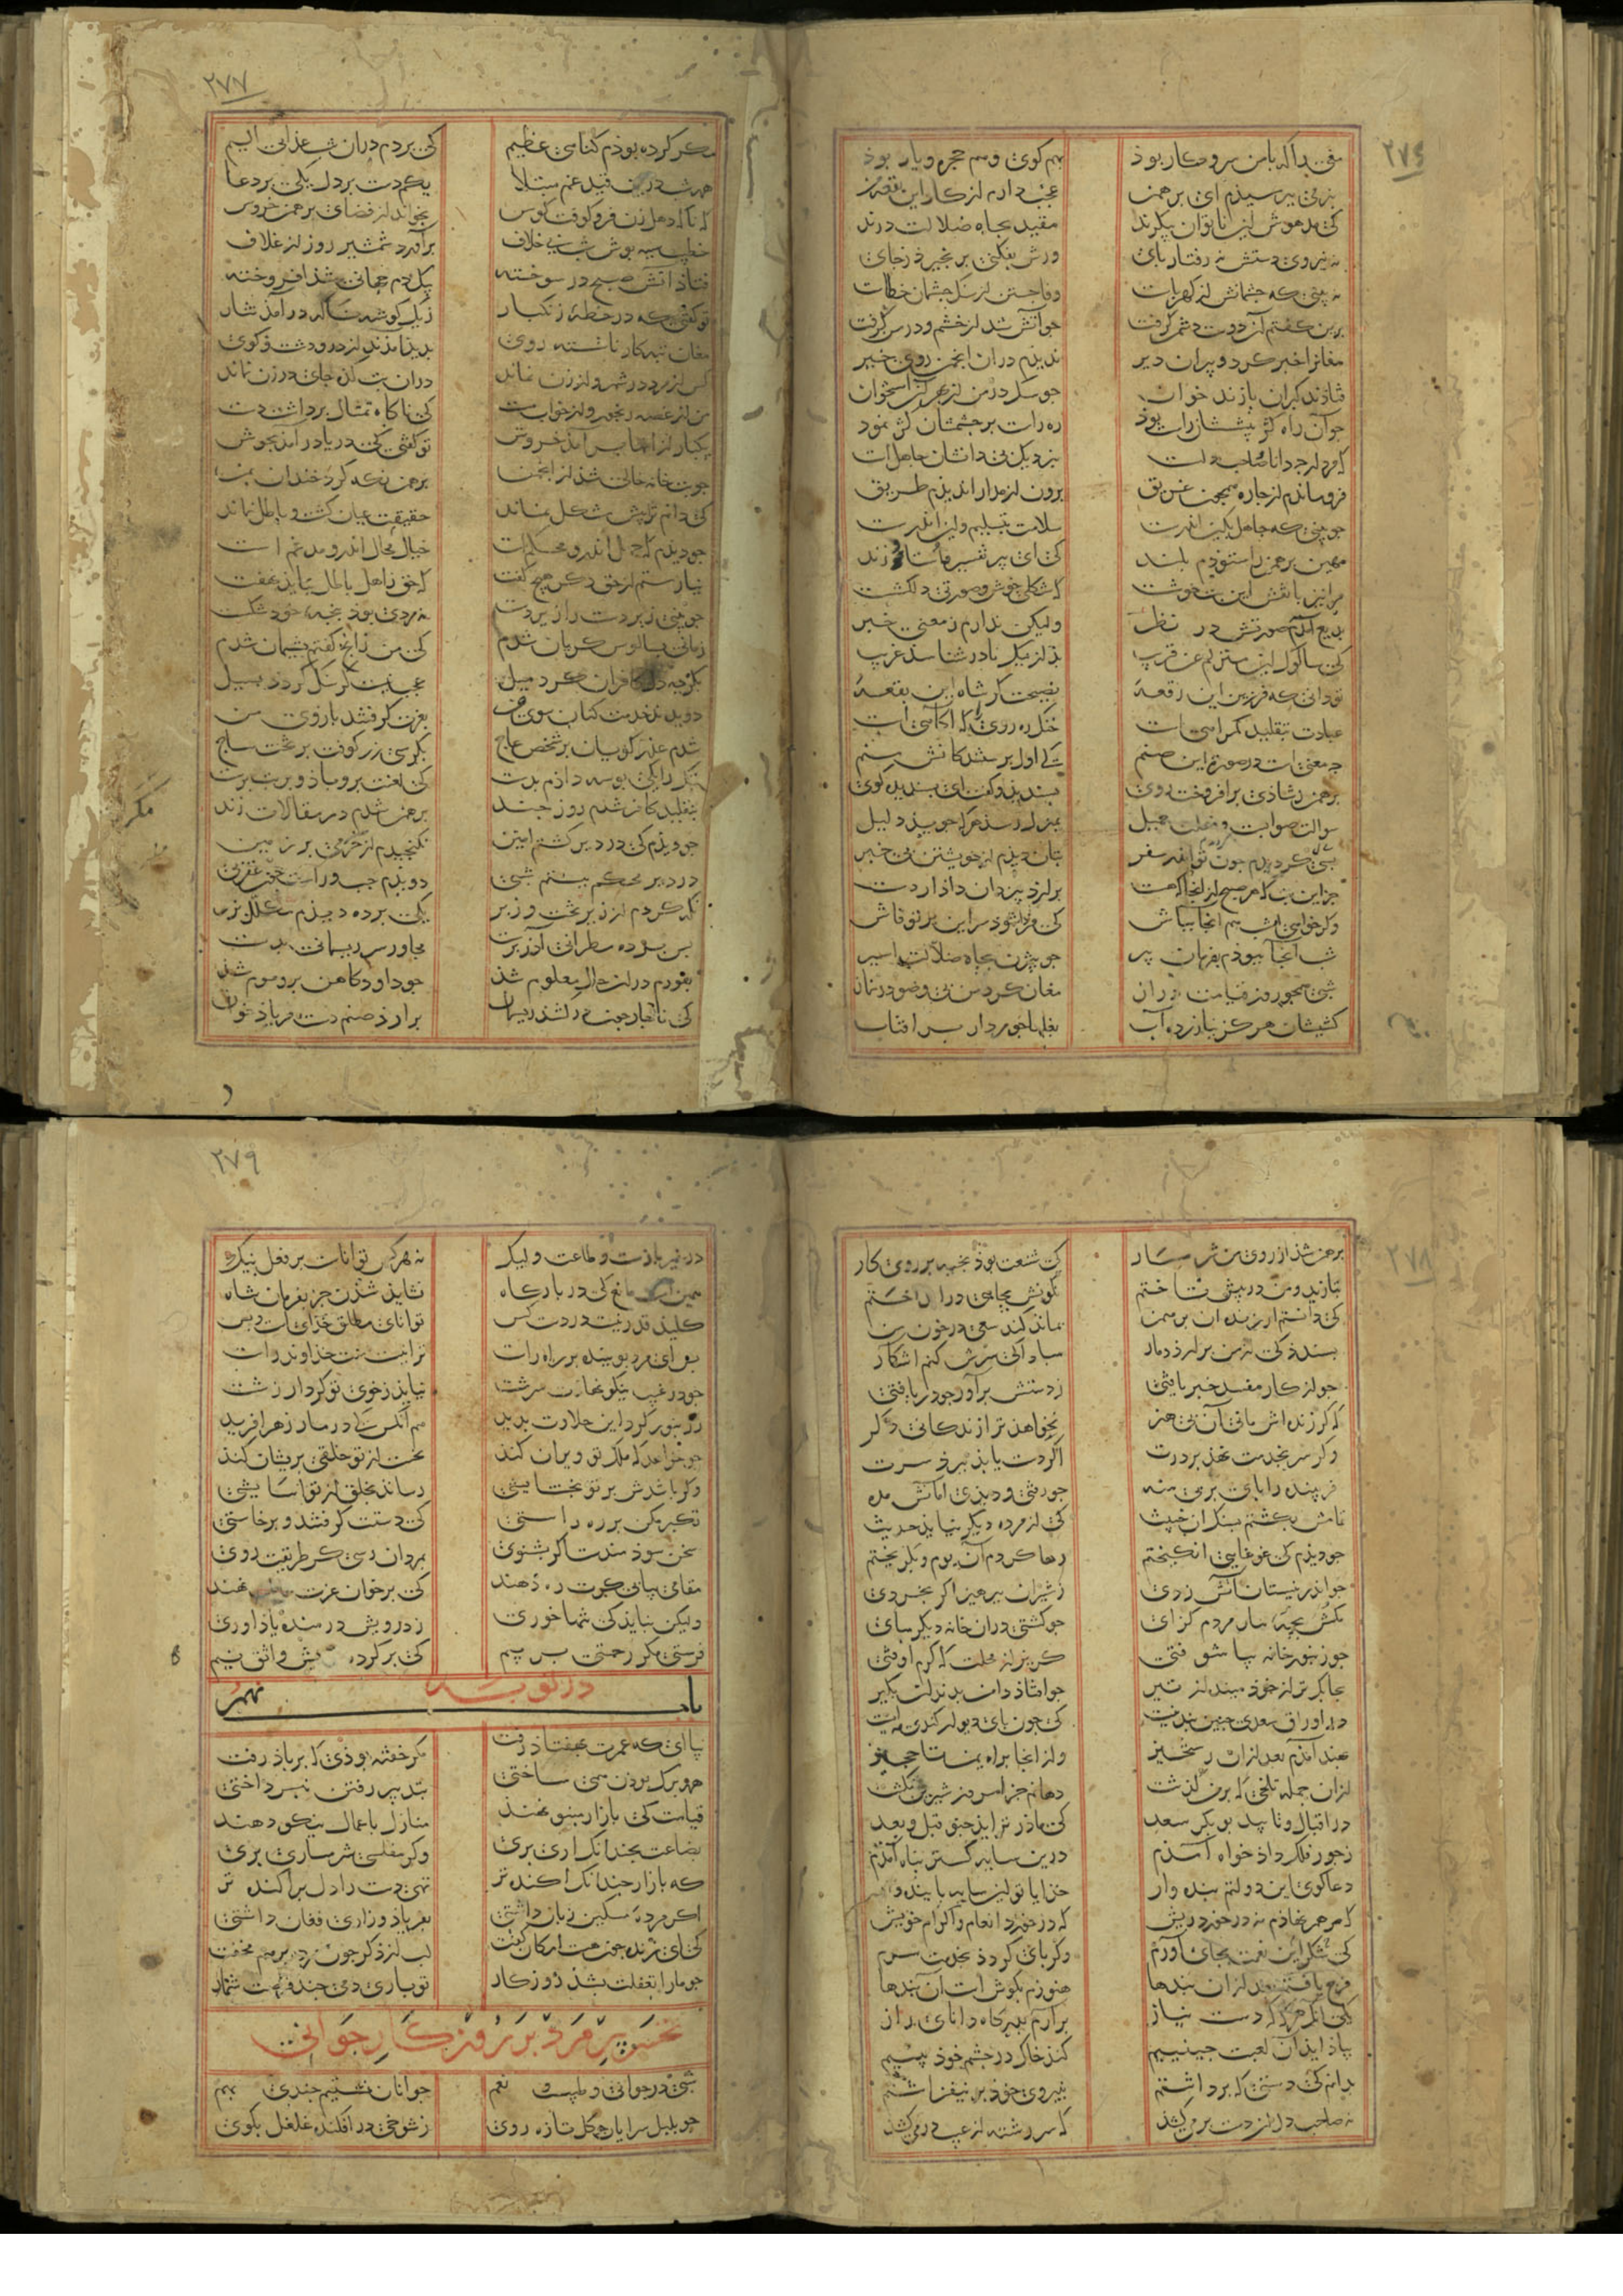 ٢٧٦
مغی را که با من سر و کار بوذ نکو کوی و هم حجره و یار بوذ
بنرمی بپرسیذم ای برهمن عجب دارم از کار این بقعه من
کی مدهوش این ناتوان پیکرند مقید بجاه ضلالت درند
نه نیروی دستش نه رفتار بای ورش بفکنی بر نخیزذ ز جای
نه بینی که جشمانش از کهرباست وفا جستن از سنک جشمان خطاست
برین کفتم آن دوست دشمن کرفت جو آتش شد از خشم و در من کرفت
مغانرا خبر کرد و پیران دیر ندیذم دران انجمن روی خیر
فتاذند کبران بازند خوان جو سک در من از بهر آن استخوان
جو آن راه کژ پیششان راست بوذ ره راست بر جشمشان کژ نموذ
که مرد ارجه دانا و صاحبدلست بنزدیک بی دانشان جاهلست
فرو ماندم از جاره همجون غریق برون از مدارا ندیذم طریق
جو بینی که جاهل بکین اندرست سلامت بتسلیم و لین اندرست
مهین برهمن را ستوذم بلند کی ای پیر تفسیر و استا و زند
مرا نیز با نقش این بت خوشست که شکلی خوش و صورتی دلکشست
بدیع آمذم صورتش در نظر ولیکن ندارم ز معنی خبر
کی سالوک این منزلم عن قریب بد از نیک نادر شناسد غریب
تو دانی که فرزین این رقعهٔ نصیحت کر شاه این بقعهٔ
عبادت بتقلید کمراهیست خنک ره روی را که آکاهیست
جه معنیست در صورة این صنم کی اول برستندکانش منم
برهمن ز شاذی برافروخت روی بسندیذ و کفت ای بسندیده کوی
سوالت صوابست و فعلت جمیل بمنزل رسذ هر که جویذ دلیل
بسی کردیذم جون تو اندر سفر بتان دیذم از خویشتن بی خبر
جز این بت که هر صبح از اینجا که هست برارذ بیزدان داذار دست
وکر خواهی امشب هم اینجا بباش کی فردا شوذ سر این بر تو فاش
شب آنجا ببوذم بفرمان پیر جو بیژن بجاه ضلالت اسیر
شبی همجو روز قیامت دراز مغان کرد من بی وضو در نماز
کشیشان هرکز نیازرده آب بغلها جو مردار بر آفتاب
٢٧٧
مکر کرده بوذم کناهی عظیم کی بردم دران شب عذابی الیم
همه شب درین قید غم مبتلا یکم دست بر دل یکی بر دعا
که ناکه دهل زن فرو کوفت کوس بخواند از فضای برهمن خروس
خطیب سیه بوش شب بی خلاف برآورد شمشیر روز از غلاف
فتاذ آتش صبح در سوخته بیک دم جهانی شذ افروخته
تو کفتی که در خطهٔ زنکبار ز یک کوشه ناکه در آمذ تتار
مغان تبه کار ناشسته روی بدیر آمذند از در و دشت و کوی
کس از مرد در شهر و از زن نماند دران بت کده جای درزن نماند
من از غصه رنجور و از خواب مست کی ناکاه تمثال برداشت دست
بیکبار از آنها برآمذ خروش تو کفتی کی دریا در آمذ بجوش
جو بتخانه خالی شذ از انجمن برهمن نکه کرد خندان بمن
کی دانم ترا بیش مشکل نماند حقیقت عیان کشت و باطل نماند
جو دیذم که جهل اندرو محکمست خیال محال اندرو مدغم است
نیارستم از حق دکر هیج کفت که حق ز اهل باطل ببایذ نهفت
جو بینی زبردست را زیردست نه مردی بوذ پنجهٔ خود شکست
زمانی بسالوس کریان شدم کی من زانچ کفتم پشیمان شدم
بکریه دل کافران کرد میل عجب نیست کر سنک کردذ بسیل
دویدند خدمت کنان سوی من بعزت کرفتند بازوی من
شدم عذر کویان بر شخص عاج بکرسی زر کوفت بر تخت ساج
بتک را یکی بوسه داذم بدست کی لعنت برو باذ و بر بت برست
بتقلید کافر شدم روز جند برهمن شدم در مقالات زند
جو دیذم کی در دیر کشتم امین نکنجیدم از خرمی بر زمین
در دیر محکم ببستم شبی دویذم جب و راست جون عقربی
نکه کردم از زیر تخت و زبر یکی برده دیذم مکلل بزر
بس برده مطرانی آذر برست مجاور سر ریسمانی بدست
بفورم دران حال معلوم شذ جو داود کاهن برو موم شذ
کی ناچار جون در کشذ ریسمان برارذ صنم دست فریاذ خوان
مکر
٢٧٨
برهمن شذ از روی من شرمسار کی شنعت بوذ بخیه بر روی کار
بتازید و من در پیش تاختم نکونش بچاهی در انداختم
کی دانستم ار زنده آن برهمن بماند کند سعی در خون من
بسندد کی از من برارذ دمار مبادا کی سرش کنم آشکار
جو از کار مفسد خبر یافتی ز دستش برآور جو دریافتی
که کر زنده اش مانی آن بی هنر نخواهد ترا زندکانی دکر
وکر سر بخدمت نهذ بر درت اکر دست یابد ببرد سرت
فریبنده را بای در پی منه جو رفتی و دیذی امانش مده
تمامش بکشتم بسنک آن خبیث کی از مرده دیکر نیاید حدیث
جو دیذم کی غوغایی انکیختم رها کردم آن بوم و بکریختم
جو اندر نیستان آتش زدی ز شیران ببرهیز اکر بخردی
مکش بچهٔ مار مردم کزای جو کشتی دران خانه دیکر مبای
جو زنبور خانه بیاشوفتی کریز از محلت که کرم اوفتی
بجابکتر از خوذ مینداز تیر جو افتاذ دامن بدندان بکیر
در اوراق سعدی جنین بند نیست کی جون بای دیوار کندی مایست
بهند آمذم بعد ازان رستخیز وز آنجا براه یمن تا حجیز
ازان جمله تلخی که بر من کذشت دهانم جز امروز شیرین نکشت
در اقبال و تایید بوبکر سعد کی ماذر نزاید جنو قبل و بعد
ز جور فلک داذ خواه آمذم درین سایه کستر پناه آمذم
دعاکوی این دولتم بنده وار خذایا تو این سایه پاینده دار
که مرهم نهاذم نه در خورد ریش که در خورد انعام و اکرام خویش
کی شکر این نعمت بجای آورم وکر بای کردذ بخدمت سرم
فرج یافتم بعد ازان بندها هنوزم بکوش است آن بندها
یکی آنک هر که که دست نیاز برآرم بدرکاه دانای راز
بیاذ آیذ آن لعبت جینیم کنذ خاک در جشم خوذ بینیم
بدانم کی دستی که برداشتم بنیروی خوذ بر نیفراشتم
نه صاحب دل از دست بر می کشذ که سر رشته از غیب در می کشذ
٢٧٩
در خیر بازست و طاعت ولیک نه هر کس تواناست بر فعل نیک
همین است مانع کی در بارکاه نشاید شذن جز بفرمان شاه
کلید قدر نیست در دست کس توانای مطلق خذای است و بس
بس ای مرد بوینده بر راه راست ترا نیست منت خذاوند راست
جو در غیب نیکو نهاذت سرشت نیایذ ز خوی تو کردار زشت
ز زنبور کرد این حلاوت بدید هم آنکس کی در مار زهر آفرید
جو خواهذ که ملک تو ویران کنذ نخست از تو خلقی بریشان کنذ
وکر باشدش بر تو بخشایشی رساند بخلق از تو آسایشی
تکبر مکن بر ره راستی کی دستت کرفتند و برخاستی
سخن سوذ مندست اکر بشنوی بمردان رسی کر طریقت روی
مقامی بیابی کرت ره دهند کی بر خوان عزت سماطت نهند
ولیکن نبایذ کی تنها خوری ز درویش درمنده یاذ آوری
فرستی مکر رحمتی بر بیم کی بر کرده خویش واثق نیم
باب نهم در توبه
بیا ای که عمرت بهفتاذ رفت مکر خفته بوذی که بر باذ رفت
همه برک بوذن همی ساختی بتدبیر رفتن نبرداختی
قیامت کی بازار مینو نهند منازل باعمال نیکو دهند
بضاعت بجندانک آری بری وکر مفلسی شرمساری بری
که بازار جندانک آکنده تر تهی دست را دل براکنده تر
اکر مرده مسکین زبان داشتی بفریاذ و زاری فغان داشتی
کی ای زنده جون هست امکان کفت لب از ذکر جون مرده بر هم مخفت
جو ما را بغفلت بشذ روزکار تو باری دمی جند فرصت شمار
تحسر پیر مرد بر روزکار جوانی
شبی در جوانی و طیب نعم جوانان نشستیم جندی بهم
جو بلبل سرایان جو کل تازه روی ز شوخی در افکنده غلغل بکوی